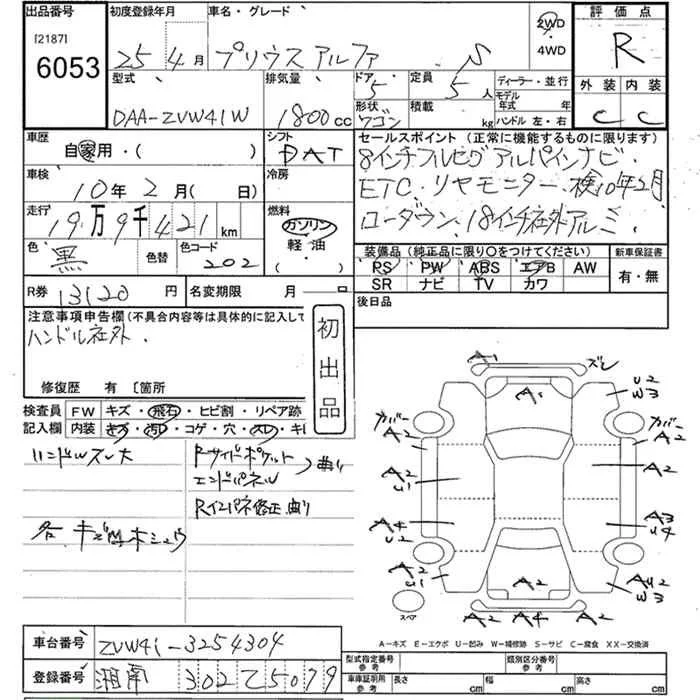 出品番号
[2187]
6053
初度登録年月
25年4月
車名・グレード
プリウスアルファ S
2WD
4WD
評価点
R
型式
DAA-ZVW41W
排気量
1800cc
ドア
5
形状
ワゴン
定員
5人
積載
kg
ディーラー・並行
モデル
年式 年
ハンドル 左・右
外装 内装
C C
車歴
自家用・( )
シフト
DAT
セールスポイント (正常に機能するものに限ります)
8インチフルセグアルパインナビ.
ETC.リヤモニター.検10年2月
ローダウン.18インチ社外アルミ.
車検
10年2月(日)
冷房
走行
19万9千421km
燃料
ガソリン
軽・油
( )
色
黒
色替
色コード
202
装備品(純正品に限り○をつけてください)
PS PW ABS エアB AW
SR ナビ TV カワ
新車保証書
有・無
R券
13120円
名変期限 月 日
後日品
注意事項申告欄(不具合内容等は具体的に記入して
ハンドル社外.
初出品
修復歴 有 〔箇所
検査員
記入欄
FW キズ・飛石・ヒビ割・リペア跡
内装 キズ・汚レ・コゲ・穴・スレ・キレ
ハンドルスレ大
Rサイドポケット
エンドパネル
曲り
Rインパネ修正.曲り
A1 ズレ
A1
U2
W3
カバー
A2
カバー
A2
A2
U1
A2
A2
A4
U2
A3
U4
A2
U1
A2
AU2
W3
スペア
A2 A4 A2
A-キズ E-エクボ U-凹み W-補修跡 S-サビ C-腐食 XX-交換済
車台番号
ZVW41-3254304
登録番号
湘南 302 て 5079
型式指定番号
参考
類別区分番号
参考
車庫証明用
参考
長さ cm
幅 cm
高さ cm